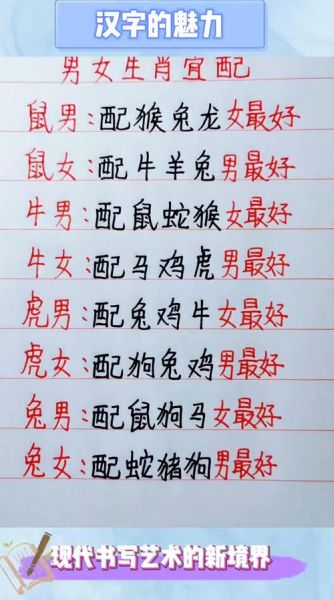 汉字的魅力
男女生肖宜配
鼠男:配猴兔龙女最好
鼠女:配牛羊兔男最好
牛男:配鼠蛇猴女最好
牛女:配马鸡虎男最好
虎男:配兔鸡牛女最好
虎女:配狗兔鸡男最好
兔男:配鼠狗马女最好
兔女:配蛇猪狗男最好
现代书写艺术的新境界